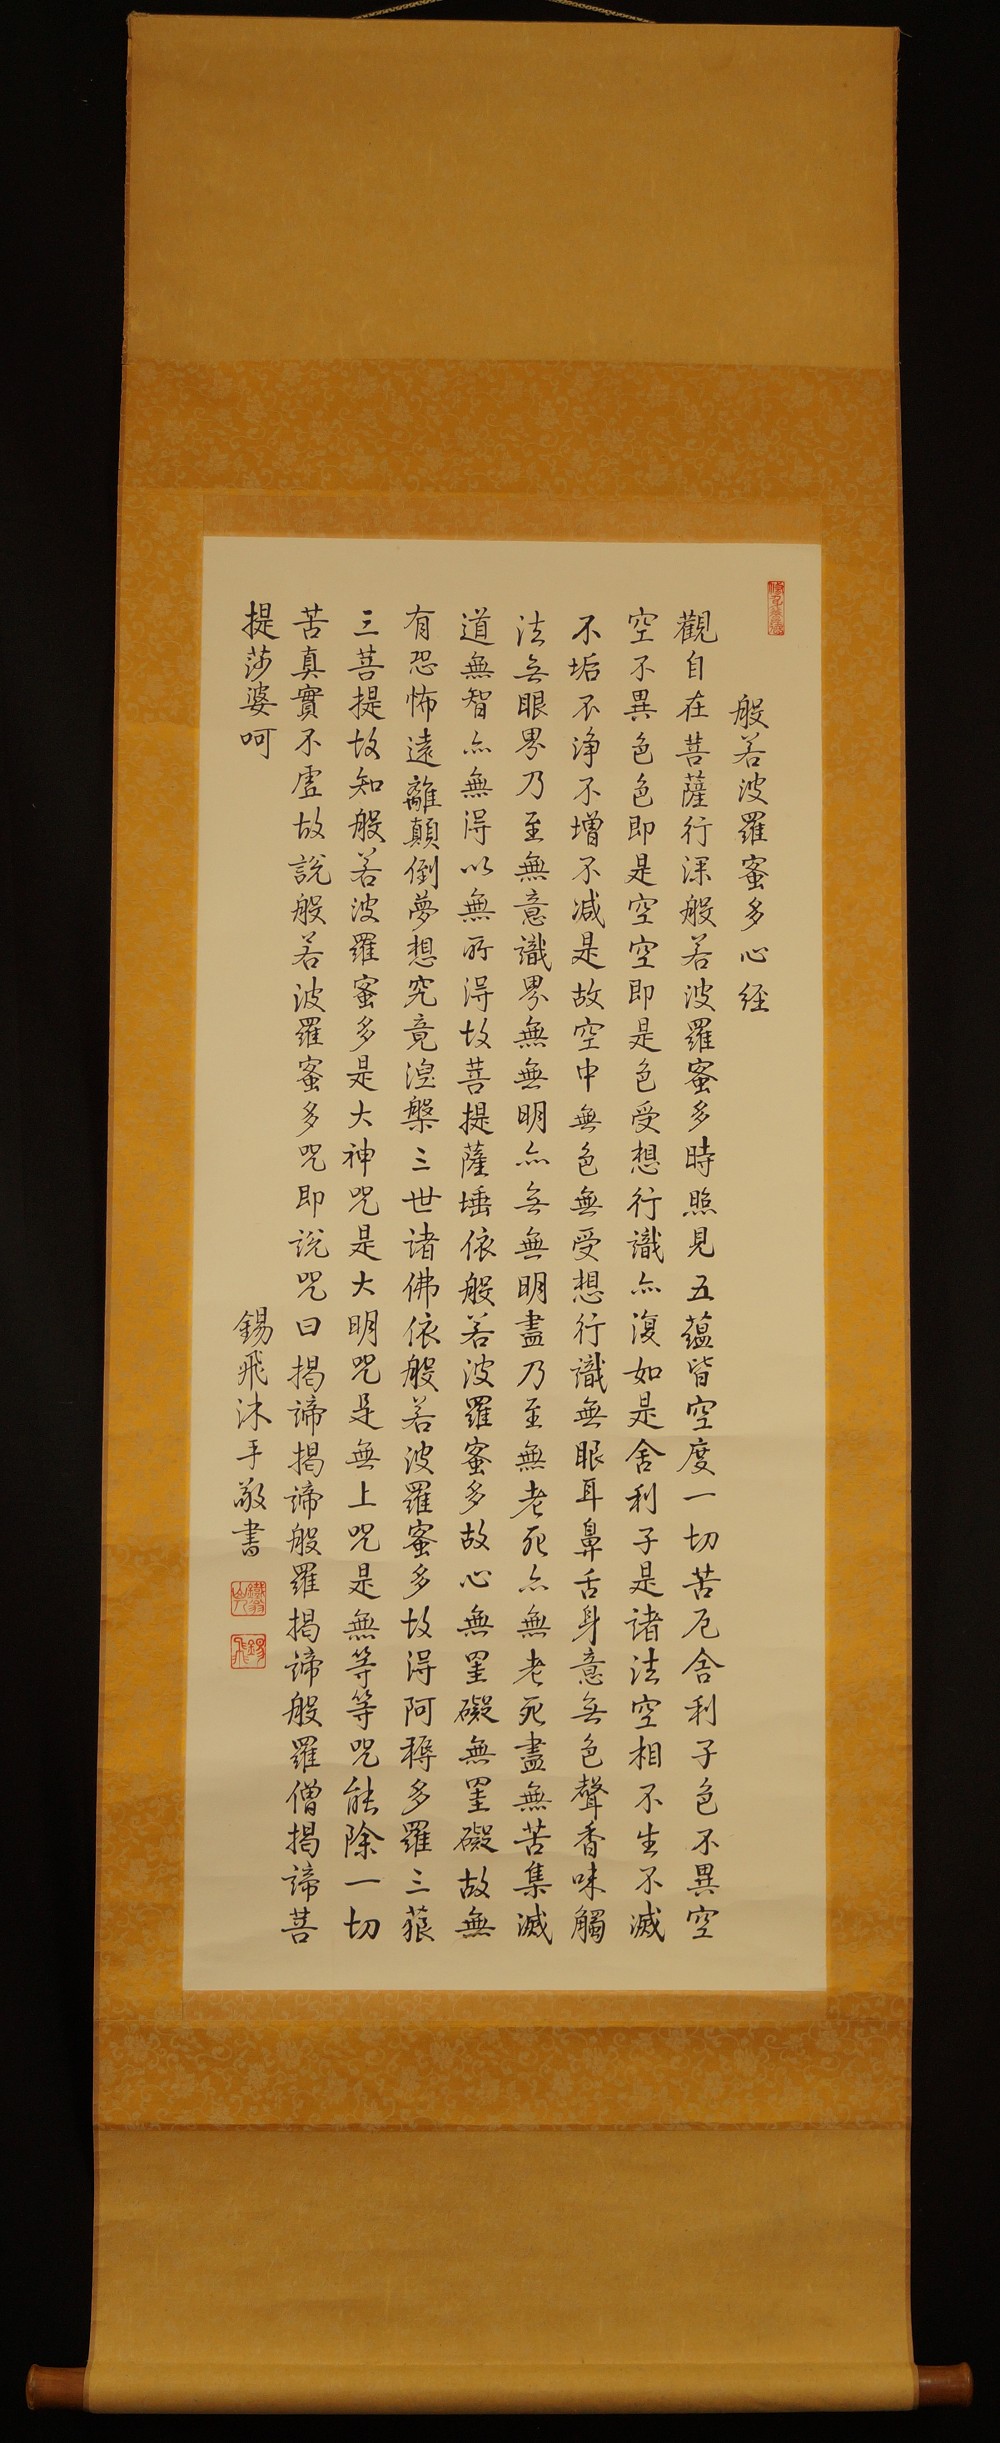 般若波羅蜜多心經
觀自在菩薩行深般若波羅蜜多時照見五蘊皆空度一切苦厄舍利子色不異空
空不異色色即是空空即是色受想行識亦復如是舍利子是諸法空相不生不滅
不垢不淨不增不减是故空中無色無受想行識無眼耳鼻舌身意无色聲香味觸
法无眼界乃至無意識界無無明亦无無明盡乃至無老死亦無老死盡無苦集滅
道無智亦無得以無所得故菩提薩埵依般若波羅蜜多故心無罣礙無罣礙故無
有恐怖遠離顛倒夢想究竟涅槃三世諸佛依般若波羅蜜多故得阿耨多羅三藐
三菩提故知般若波羅蜜多是大神咒是大明咒是無上咒是無等等咒能除一切
苦真實不虛故說般若波羅蜜多咒即說咒曰揭諦揭諦般羅揭諦般羅僧揭諦菩
提莎婆呵
錫飛沐手敬書
錫飛